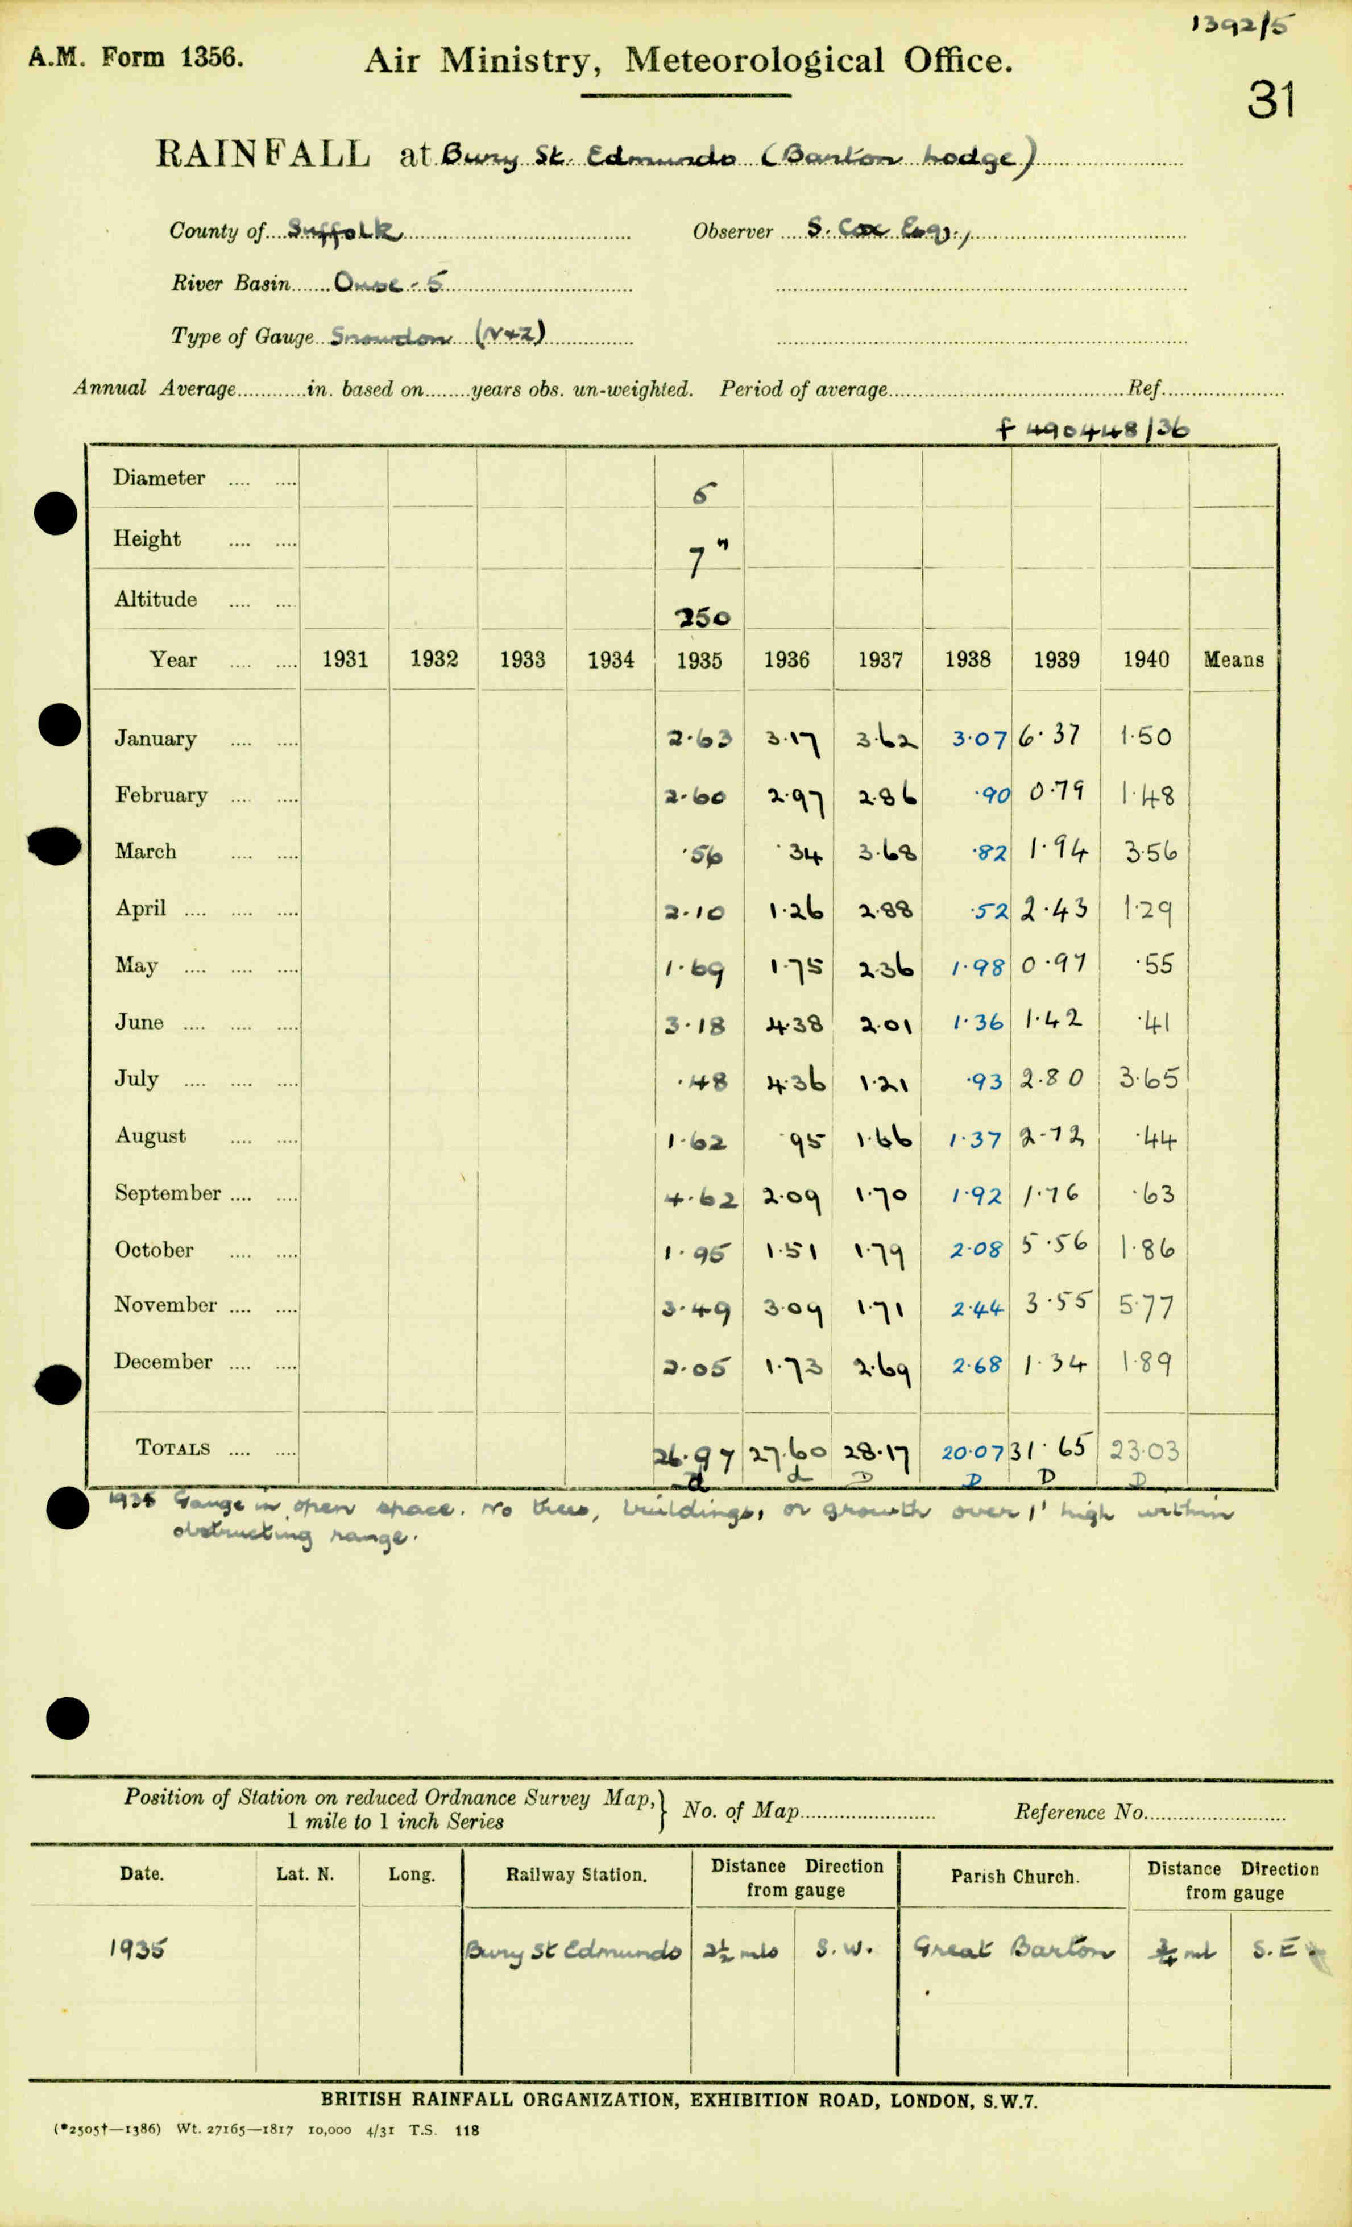 1392/5
A.M. Form 1356. Air Ministry, Meteorological Office.
31
RAINFALL at Bury St. Edmunds (Barton Lodge)
County of Suffolk Observer S. Cox Esq.,
River Basin Ouse - 5
Type of Gauge Snowdon (N+Z)
Annual Average in. based on years obs. un-weighted. Period of average Ref.
f 490448/36
Diameter 5
Height 7"
Altitude 250
Year 1931 1932 1933 1934 1935 1936 1937 1938 1939 1940 Means
January 2.63 3.17 3.62 3.07 6.37 1.50
February 2.60 2.97 2.86 .90 0.79 1.48
March .56 .34 3.68 .82 1.94 3.56
April 2.10 1.26 2.88 .52 2.43 1.29
May 1.69 1.75 2.36 1.98 0.97 .55
June 3.18 4.38 2.01 1.36 1.42 .41
July .48 4.36 1.21 .93 2.80 3.65
August 1.62 .95 1.66 1.37 2.72 .44
September 4.62 2.09 1.70 1.92 1.76 .63
October 1.95 1.51 1.79 2.08 5.56 1.86
November 3.49 3.09 1.71 2.44 3.55 5.77
December 2.05 1.73 2.69 2.68 1.34 1.89
TOTALS 26.97 27.60 28.17 20.07 31.65 23.03
d d D D D D
1935 Gauge in open space. No trees, buildings, or growth over 1' high within
obstructing range.
Position of Station on reduced Ordnance Survey Map,} No. of Map Reference No.
1 mile to 1 inch Series
Date. Lat. N. Long. Railway Station. Distance Direction from gauge Parish Church. Distance Direction from gauge
1935 Bury St Edmunds 2½ mls S.W. Great Barton ¾ ml S.E.
BRITISH RAINFALL ORGANIZATION, EXHIBITION ROAD, LONDON, S.W.7.
(*2505†—1386) Wt. 27165—1817 10,000 4/31 T.S. 118